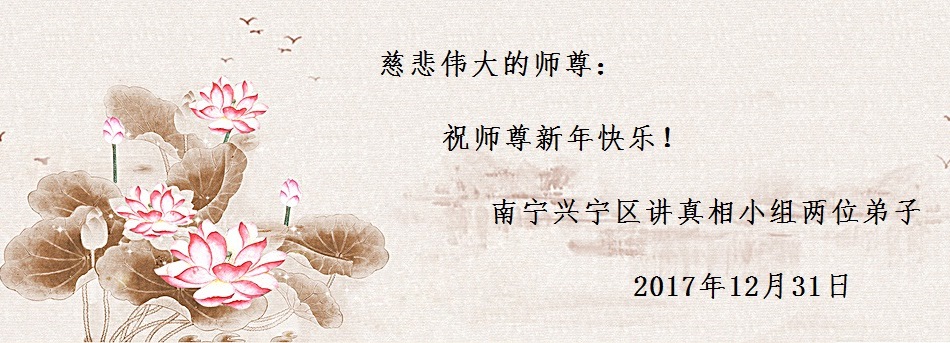 慈悲伟大的师尊：
祝师尊新年快乐！
南宁兴宁区讲真相小组两位弟子
2017年12月31日